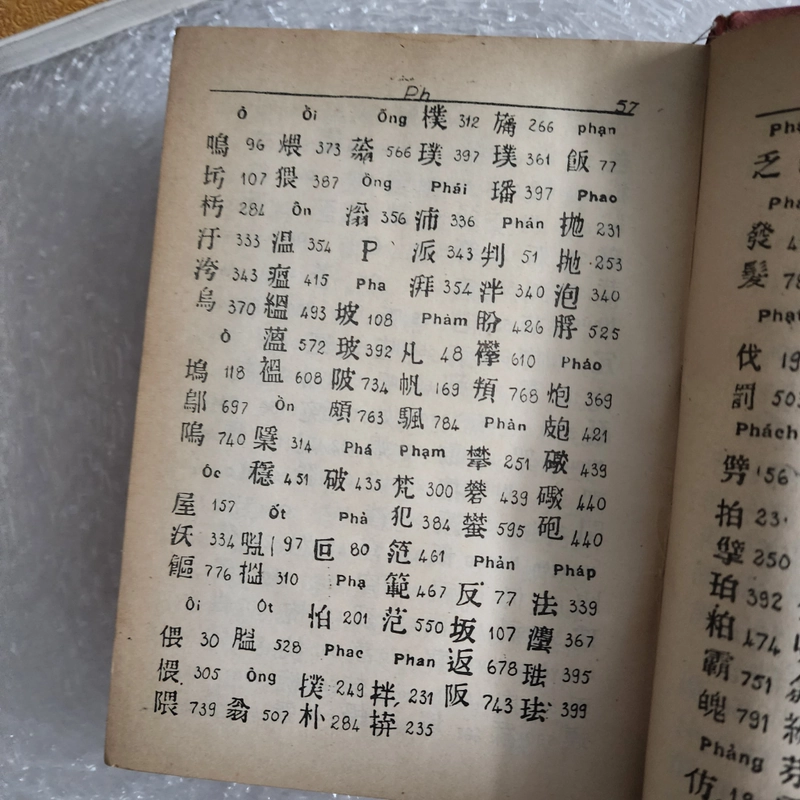 Ph 57
ô
嗚 96
圬 107
杇 284
汙 333
洿 343
烏 370
ô
塢 118
鄔 697
隖 740
Ốc
屋 157
沃 334
饇 776
Ôi
偎 30
椳 305
隈 739
Ồi
煨 373
猥 387
Ôn
温 354
瘟 415
縕 493
薀 572
褞 608
Ồn
檃 314
穩 451
Ốt
嗢 97
榅 310
Ột
膃 528
Ông
翁 507
Ống
蓊 566
Ổng
滃 356
P
Pha
坡 108
玻 392
陂 734
頗 763
Phá
破 435
Phả
叵 80
Phạ
怕 201
Phac
撲 249
朴 284
樸 312
璞 397
Phái
沛 336
派 343
湃 354
Phàm
凡 48
帆 169
颿 784
Phạm
梵 300
犯 384
笵 461
範 467
范 550
Phan
拌 231
拚 235
旛 266
璞 361
璠 397
Phán
判 51
泮 340
盼 426
襻 610
頖 768
Phàn
攀 251
礬 439
蠜 595
Phản
反 77
坂 107
返 678
阪 743
phạn
飯 77
Phao
抛 231
拋 253
泡 340
脬 525
Pháo
炮 369
皰 421
礮 439
礟 440
砲 440
Pháp
法 339
灋 367
琺 395
珐 399
乏
發
髮
伐
罰 503
Phách
劈 156
拍
擘 250
珀 392
粕 474
霸 751
魄 791
Phảng
仿
芬